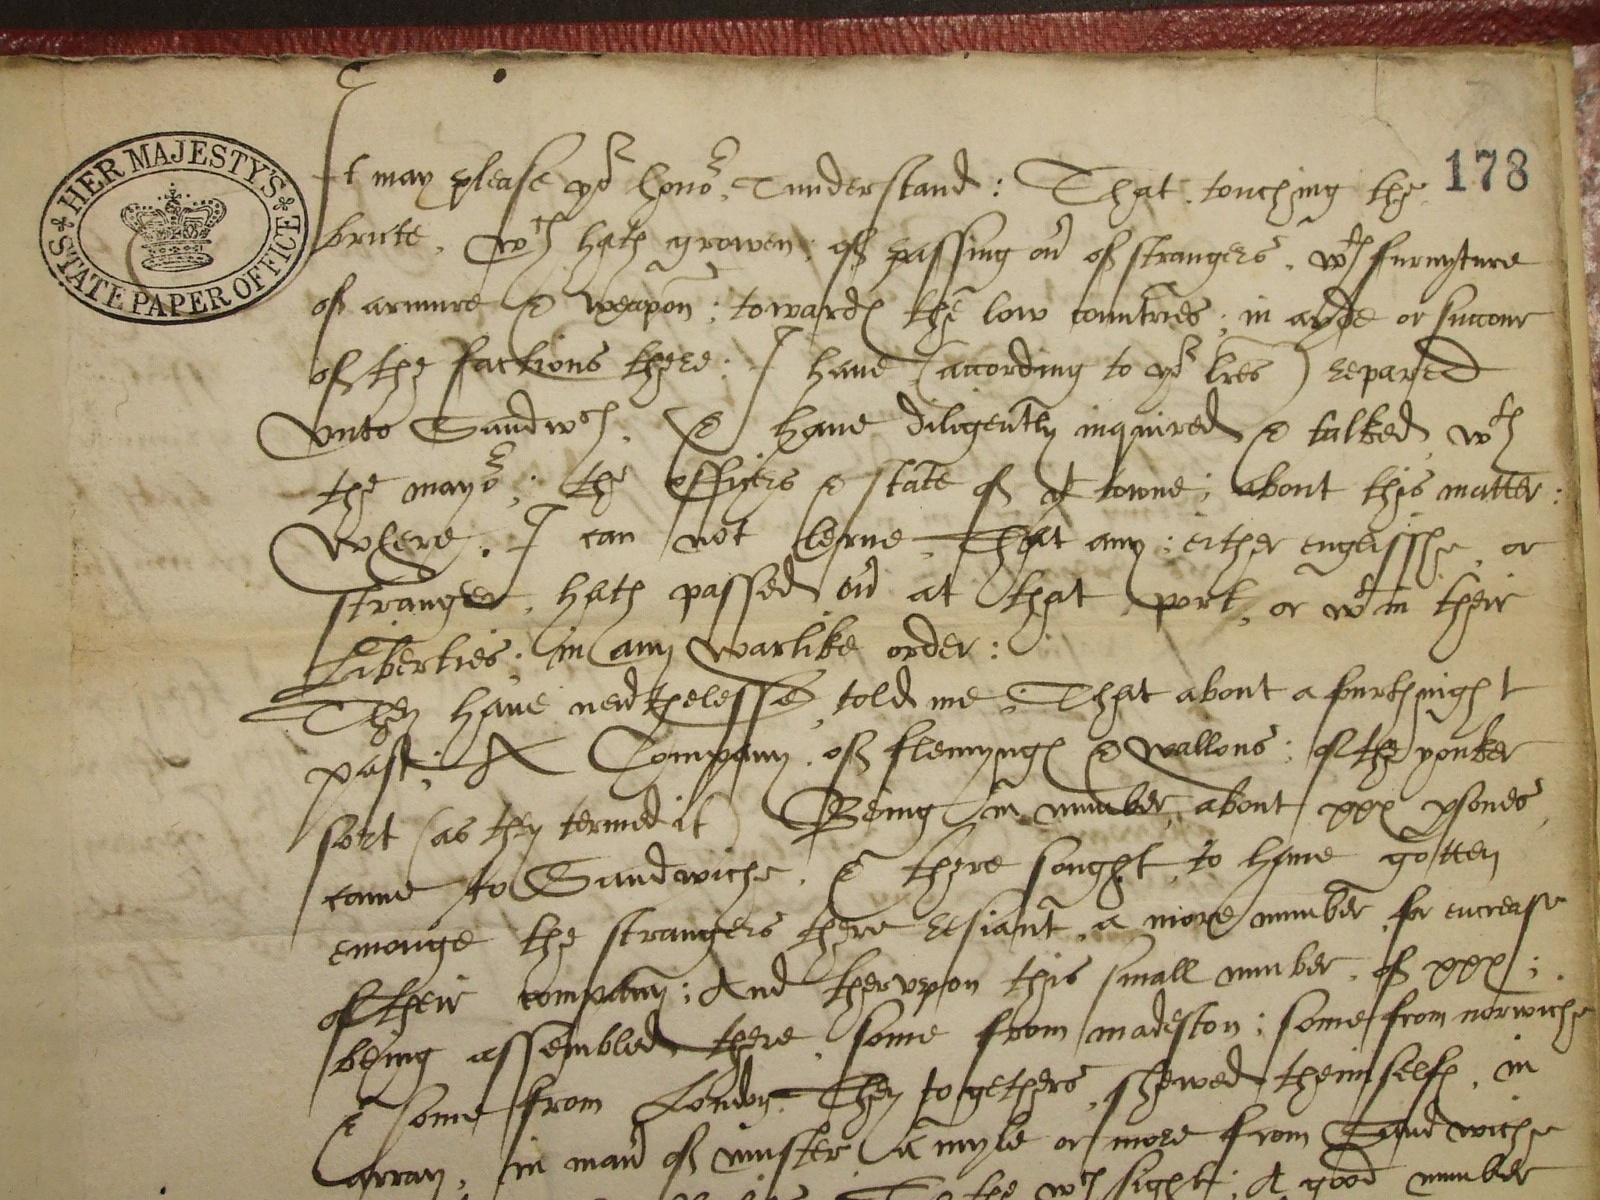 HER MAJESTY'S
STATE PAPER OFFICE
178
It may please yor honor Tunderstand: That touching the
brute, wch hath growen, of passing ou of strangers, wth furnyture
of armure & weapon; towards the low countries; in ayde or succour
of the factions there: I have (according to yor lres) repared
vnto Sandwch, & have diligently inquired & talked wth
the mayor; the officers & state of yt towne; about this matter:
Where, I can not lerne, That any: either englisshe, or
stranger, hath passed ou at that port, or wtin their
Liberties; in any warlike order:
They have neuthelesse, told me; That about a fourthnight
past; A Company, of flemyngs & wallons; of the yonker
sort (as they termed it) Being in number, about xxx psones,
came to Sandwiche, & there sought, to have gotten
emonge the strangers there resiant, a more number, for encrease
of their company; And thervpon this small number, of xxx;
being assembled there, some from madeston; some from norwiche
& some from London, They togethers, shewed theimselfs, in
array, in man of muster a myle or more from Sandwiche
To the wch sight; A good number